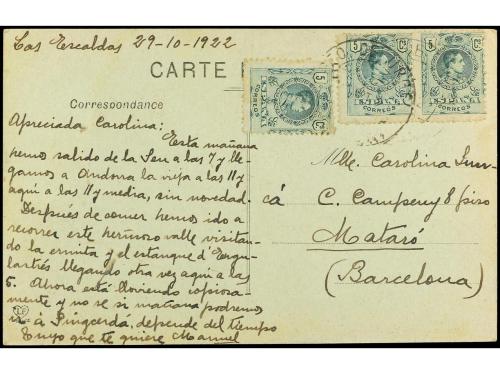 Las Escaldas 29-10-1922
CARTE
Correspondance
Apreciada Carolina:
Esta mañana
hemos salido de la Seu a las 7 y lle-
gamos a Andorra la vieja a las 11 y
aquí a las 11 y media, sin novedad.
Después de comer hemos ido a
recorrer este hermoso valle visitan-
do la ermita y el estanque d'Engu-
lastrés llegando otra vez aquí a las
5. Ahora está lloviendo copiosa-
mente y no se si mañana podremos
ir á Puigcerdá, depende del tiempo
Tuyo que te quiere Manuel
5 Cs
CORREOS
5 Cs
CORREOS
5 Cs
CORREOS
Mlle. Carolina
cá
C. Campeny 8 piso
Mataró
(Barcelona)